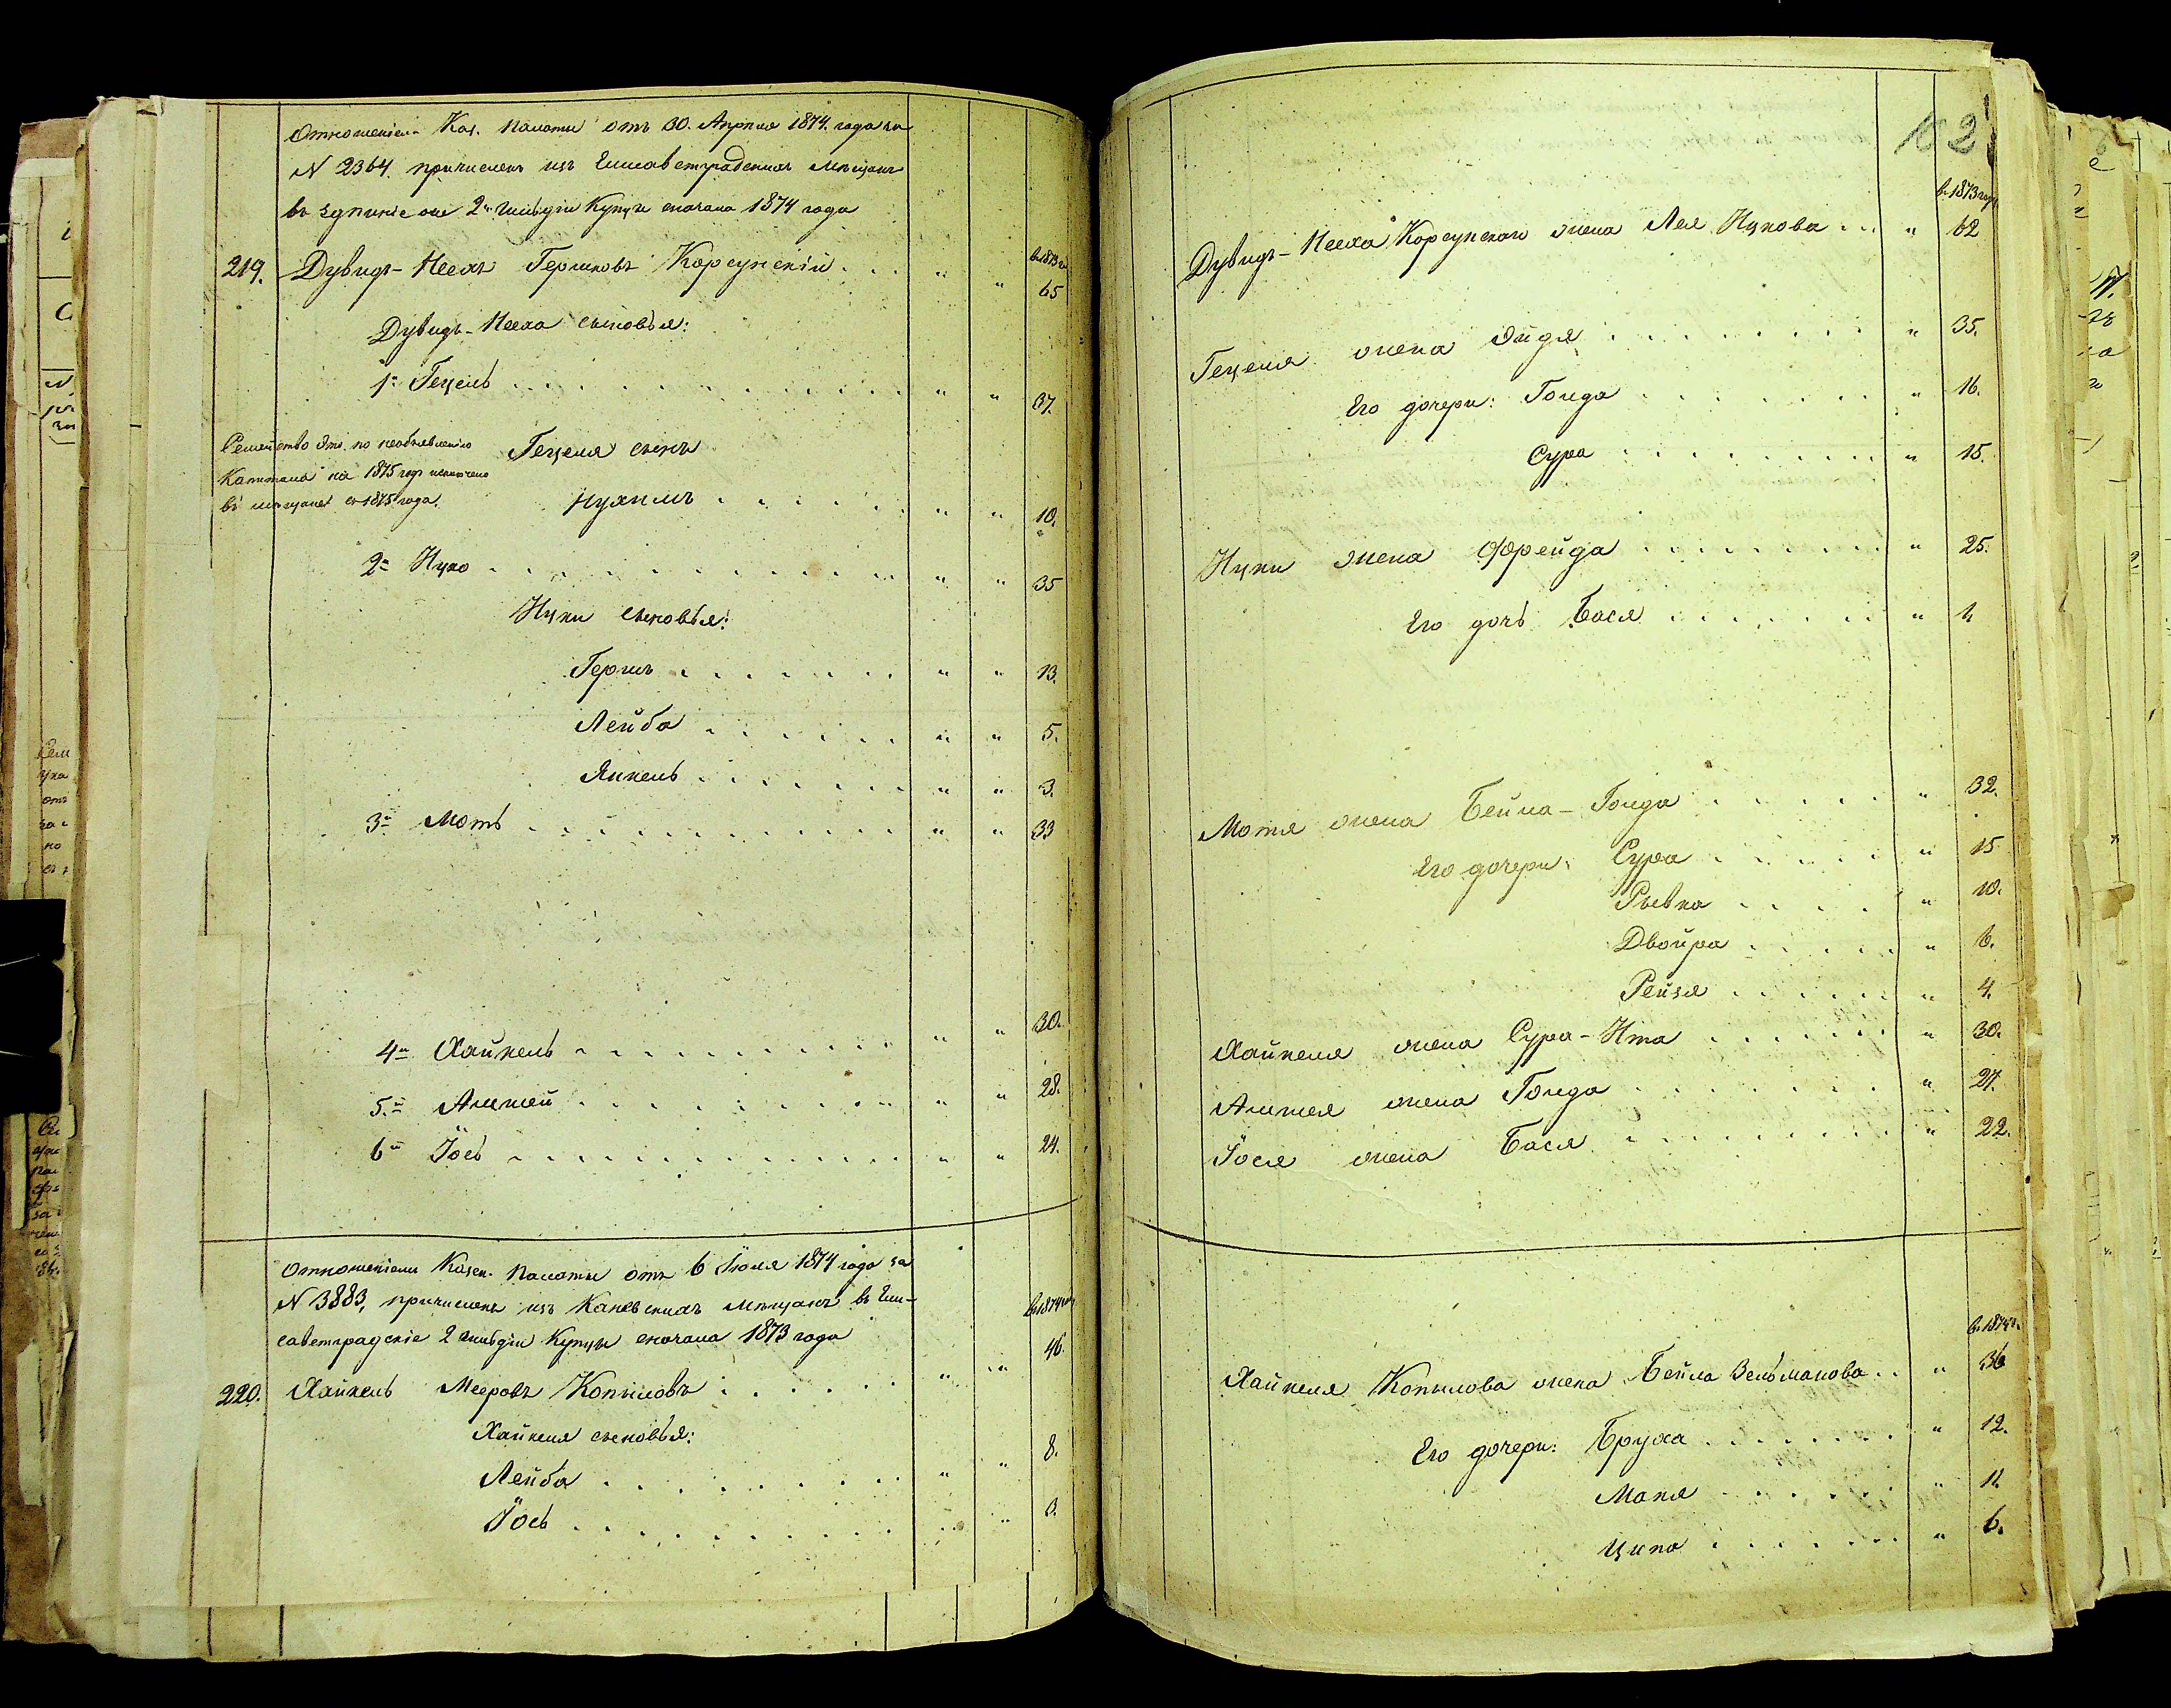 Отношеніем Каз. Палаты отъ 30. Апрѣля 1874. года за
N 2364. причисленъ изъ Елисаветградскихъ мѣщанъ
въ здѣшніе же 2й Гильдіи Купцы сначала 1874 года
въ 1873 г.
219. Дувидъ-Нееха Гершковъ Корсунскій . . . " " 65
Дувидъ-Нееха сыновья:
1й Гецель . . . " " 37.
Семейство это по необъявленію
Капитала на 1875 годъ исключено
въ мѣщане съ 1875 года.
Гецеля сынъ
Нухимъ . . . " " 10.
2й Ицко . . . " " 35
Ицки сыновья:
Гершъ . . . " " 13.
Лейба . . . " " 5.
Янкель . . . " " 3.
3й Моть . . . " " 33
4й Хайкель . . . " " 30.
5й Аншей . . . " " 28.
6й Іось . . . " " 24.
Отношеніем Казен. Палаты отъ 6 Іюля 1874 года за
N 3883, причисленъ изъ Каневскихъ мѣщанъ въ Ели-
саветградскіе 2 Гильдіи Купцы сначала 1873 года
въ 1874 г.
220. Хайкель Мееровъ Копыловъ . . . " " 46.
Хайкеля сыновья:
Лейба . . . " " 8.
Іось . . . " " 3.
102
въ 1873 году
Дувидъ-Нееха Корсунскаго жена Лея Ицкова . . . " 62
Гецеля жена Эйдя . . . " 35.
Его дочери: Голда . . . " 16.
Сура . . . " 15.
Ицки жена Фрейда . . . " 25.
Его дочь Бася . . . " 1.
Мотя жена Бейла-Голда . . . " 32.
Его дочери: Сура . . . " 15
Рывка . . . " 10.
Двойра . . . " 6.
Рейзя . . . " 4.
Хайкеля жена Сура-Ита . . . " 30.
Аншея жена Голда . . . " 27.
Іося жена Бася . . . " 22.
въ 1874 г.
Хайкеля Копылова жена Бейла Зельманова . . " 36
Его дочери: Бруха . . . " 12.
Маня . . . " 11.
Ципа . . . " 6.